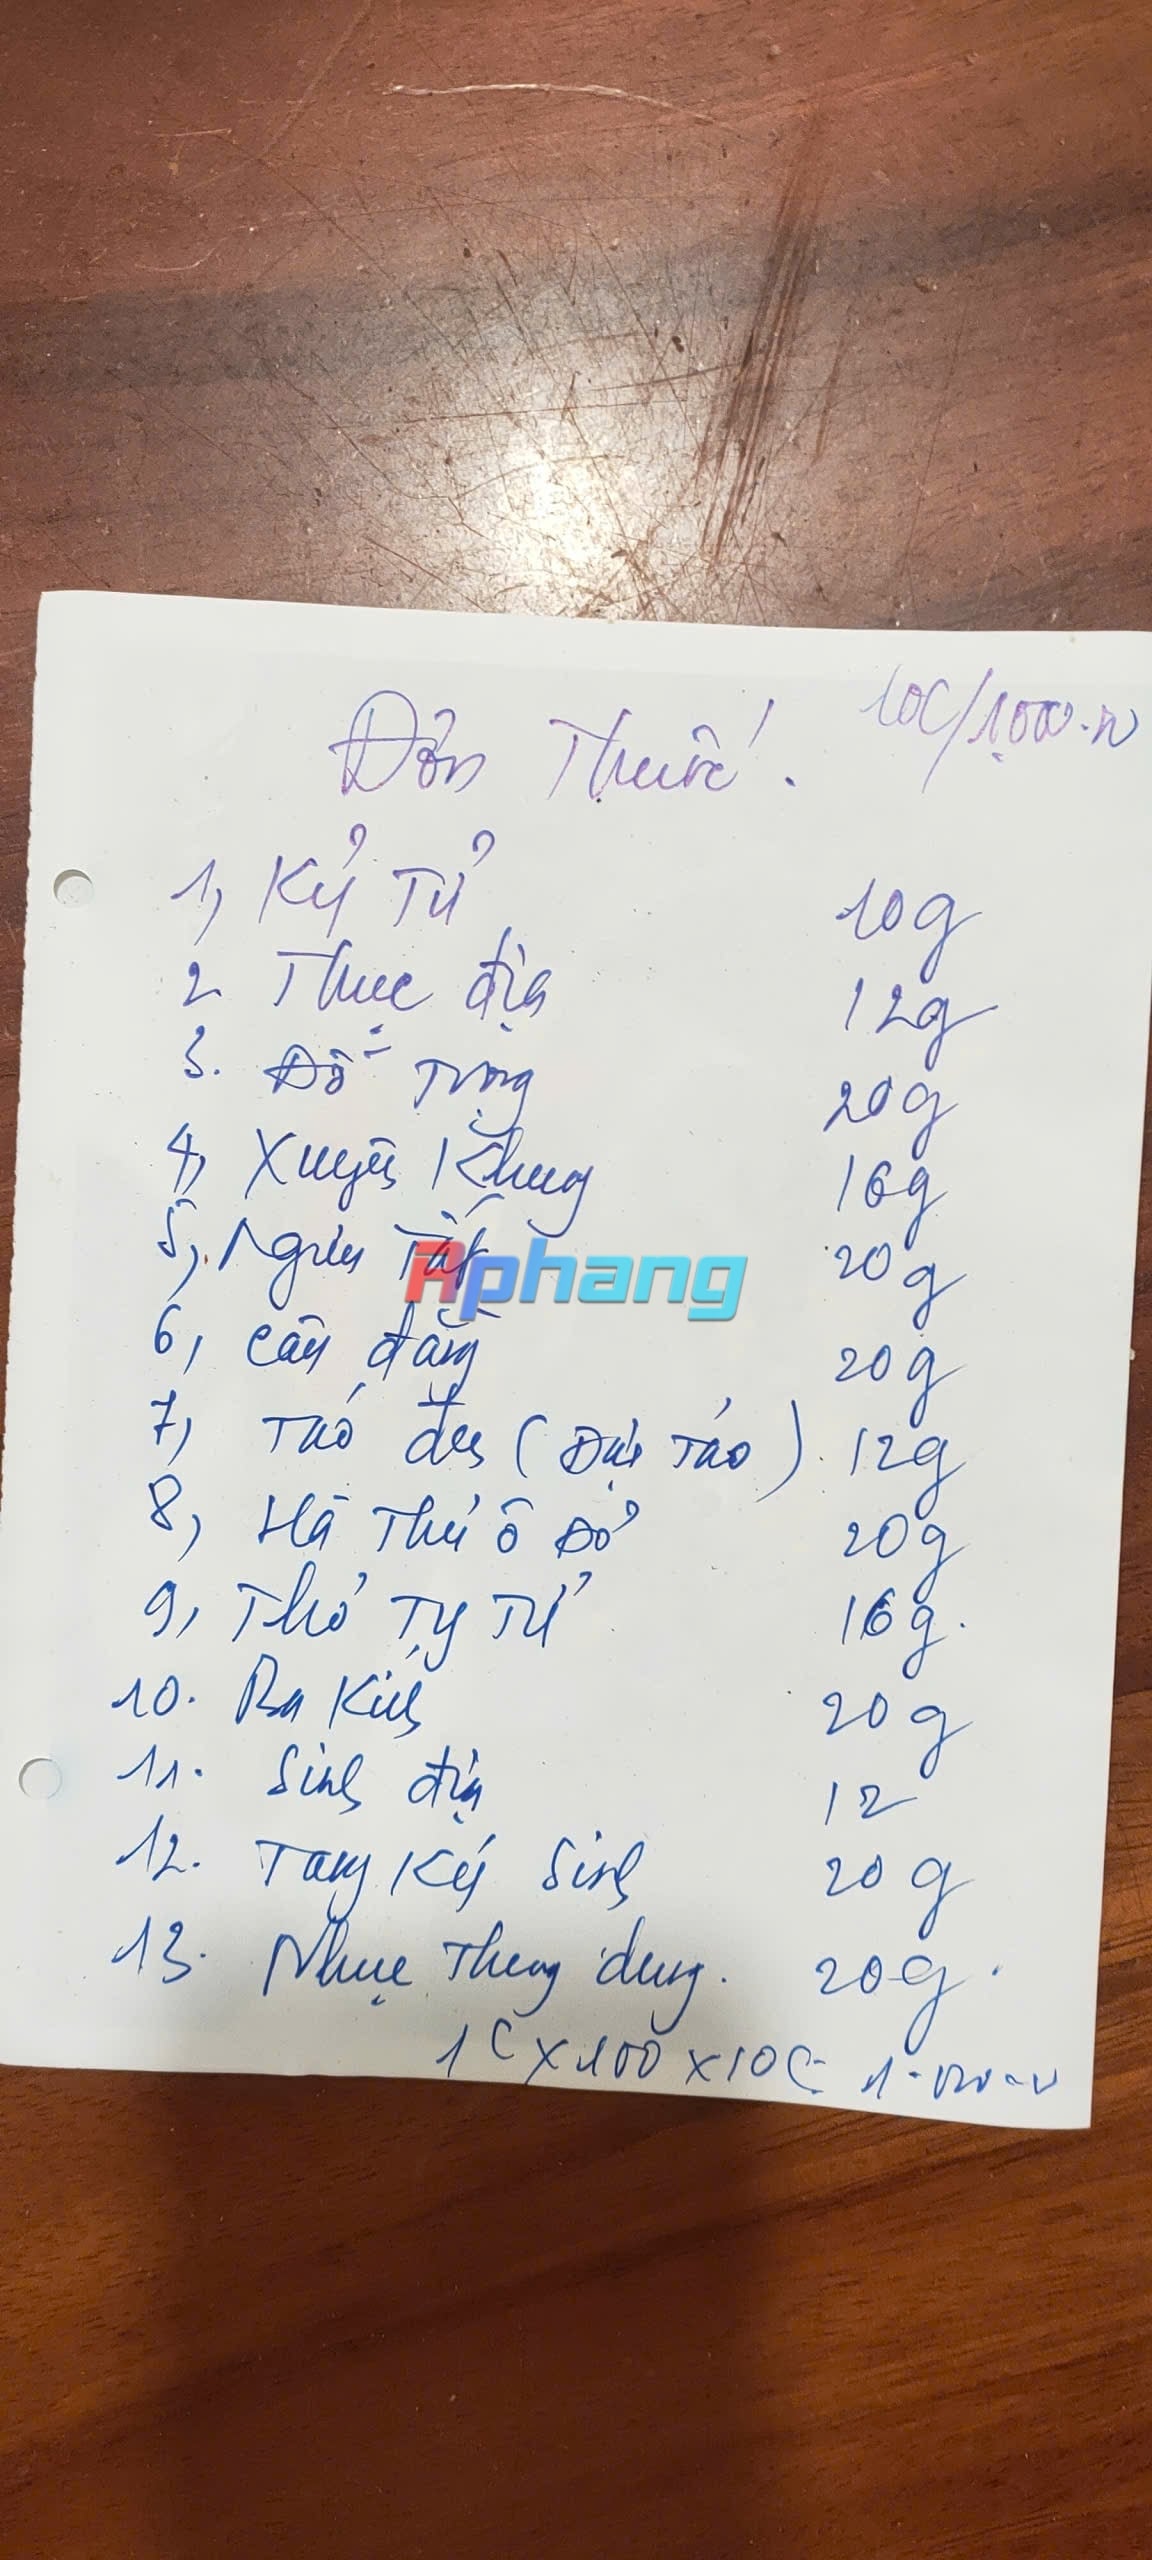 Đơn Thuốc. 10C/1,000.N
1, Kỷ Tử 10g
2 Thục địa 12g
3. Đỗ Trọng 20g
4, Xuyên Khung 16g
5, Ngưu Tất 20g
Aphang
6, Cẩu đằng 20g
7, Táo đen (Đại Táo) 12g
8, Hà Thủ ô Đỏ 20g
9, Thỏ Ty Tử 16g.
10. Ba Kích 20g
11. Sinh địa 12
12. Tang Ký Sinh 20g
13. Nhục Thung dung. 20g.
1C x 100 x 10C